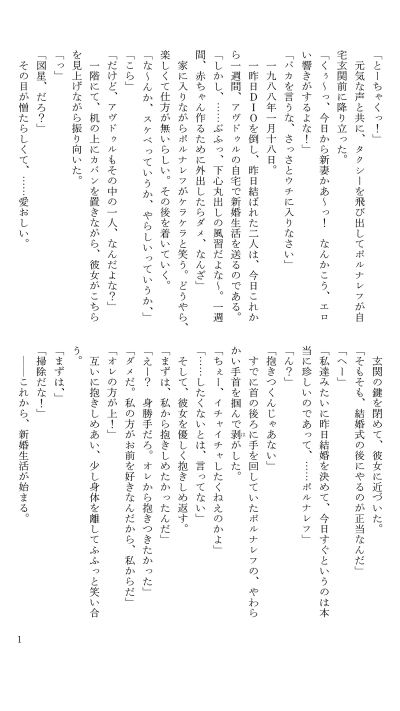 「とーちゃくっ！」
　元気な声と共に、タクシーを飛び出してポルナレフが自
宅玄関前に降り立った。
「くぅ～っ、今日から新妻かあ～っ！　なんかこう、エロ
い響きがするよな！」
「バカを言うな、さっさとウチに入りなさい」
　一九八八年一月十八日。
　一昨日ＤＩＯを倒し、昨日結ばれた二人は、今日これか
ら一週間、アヴドゥルの自宅で新婚生活を送るのである。
「しかし、……ぷふっ、下心丸出しの風習だよな～。一週
間、赤ちゃん作るために外出したらダメ、なんざ」
　家に入りながらポルナレフがケラケラと笑う。どうやら、
楽しくて仕方が無いらしい。その後を着いていく。
「な～んか、スケベっていうか、やらしいっていうか、」
「こら」
「だけど、アヴドゥルもその中の一人、なんだよな？」
　一階にて、机の上にカバンを置きながら、彼女がこちら
を見上げながら振り向いた。
「っ」
「図星、だろ？」
　その目が憎たらしくて、……愛おしい。
　玄関の鍵を閉めて、彼女に近づいた。
「そもそも、結婚式の後にやるのが正当なんだ」
「へー」
「私達みたいに昨日結婚を決めて、今日すぐというのは本
当に珍しいのであって、……ポルナレフ」
「ん？」
「抱きつくんじゃあない」
　すでに首の後ろに手を回していたポルナレフの、やわら
かい手首を掴んで剥がした。
「ちぇー、イチャイチャしたくねえのかよ」
「……したくないとは、言ってない」
　そして、彼女を優しく抱きしめ返す。
「まずは、私から抱きしめたかったんだ」
「えー？　身勝手だろ。オレから抱きつきたかった」
「ダメだ。私の方がお前を好きなんだから、私からだ」
「オレの方が上！」
　互いに抱きしめあい、少し身体を離してふふっと笑い合
う。
「まずは、」
「掃除だな！」
　――これから、新婚生活が始まる。
1